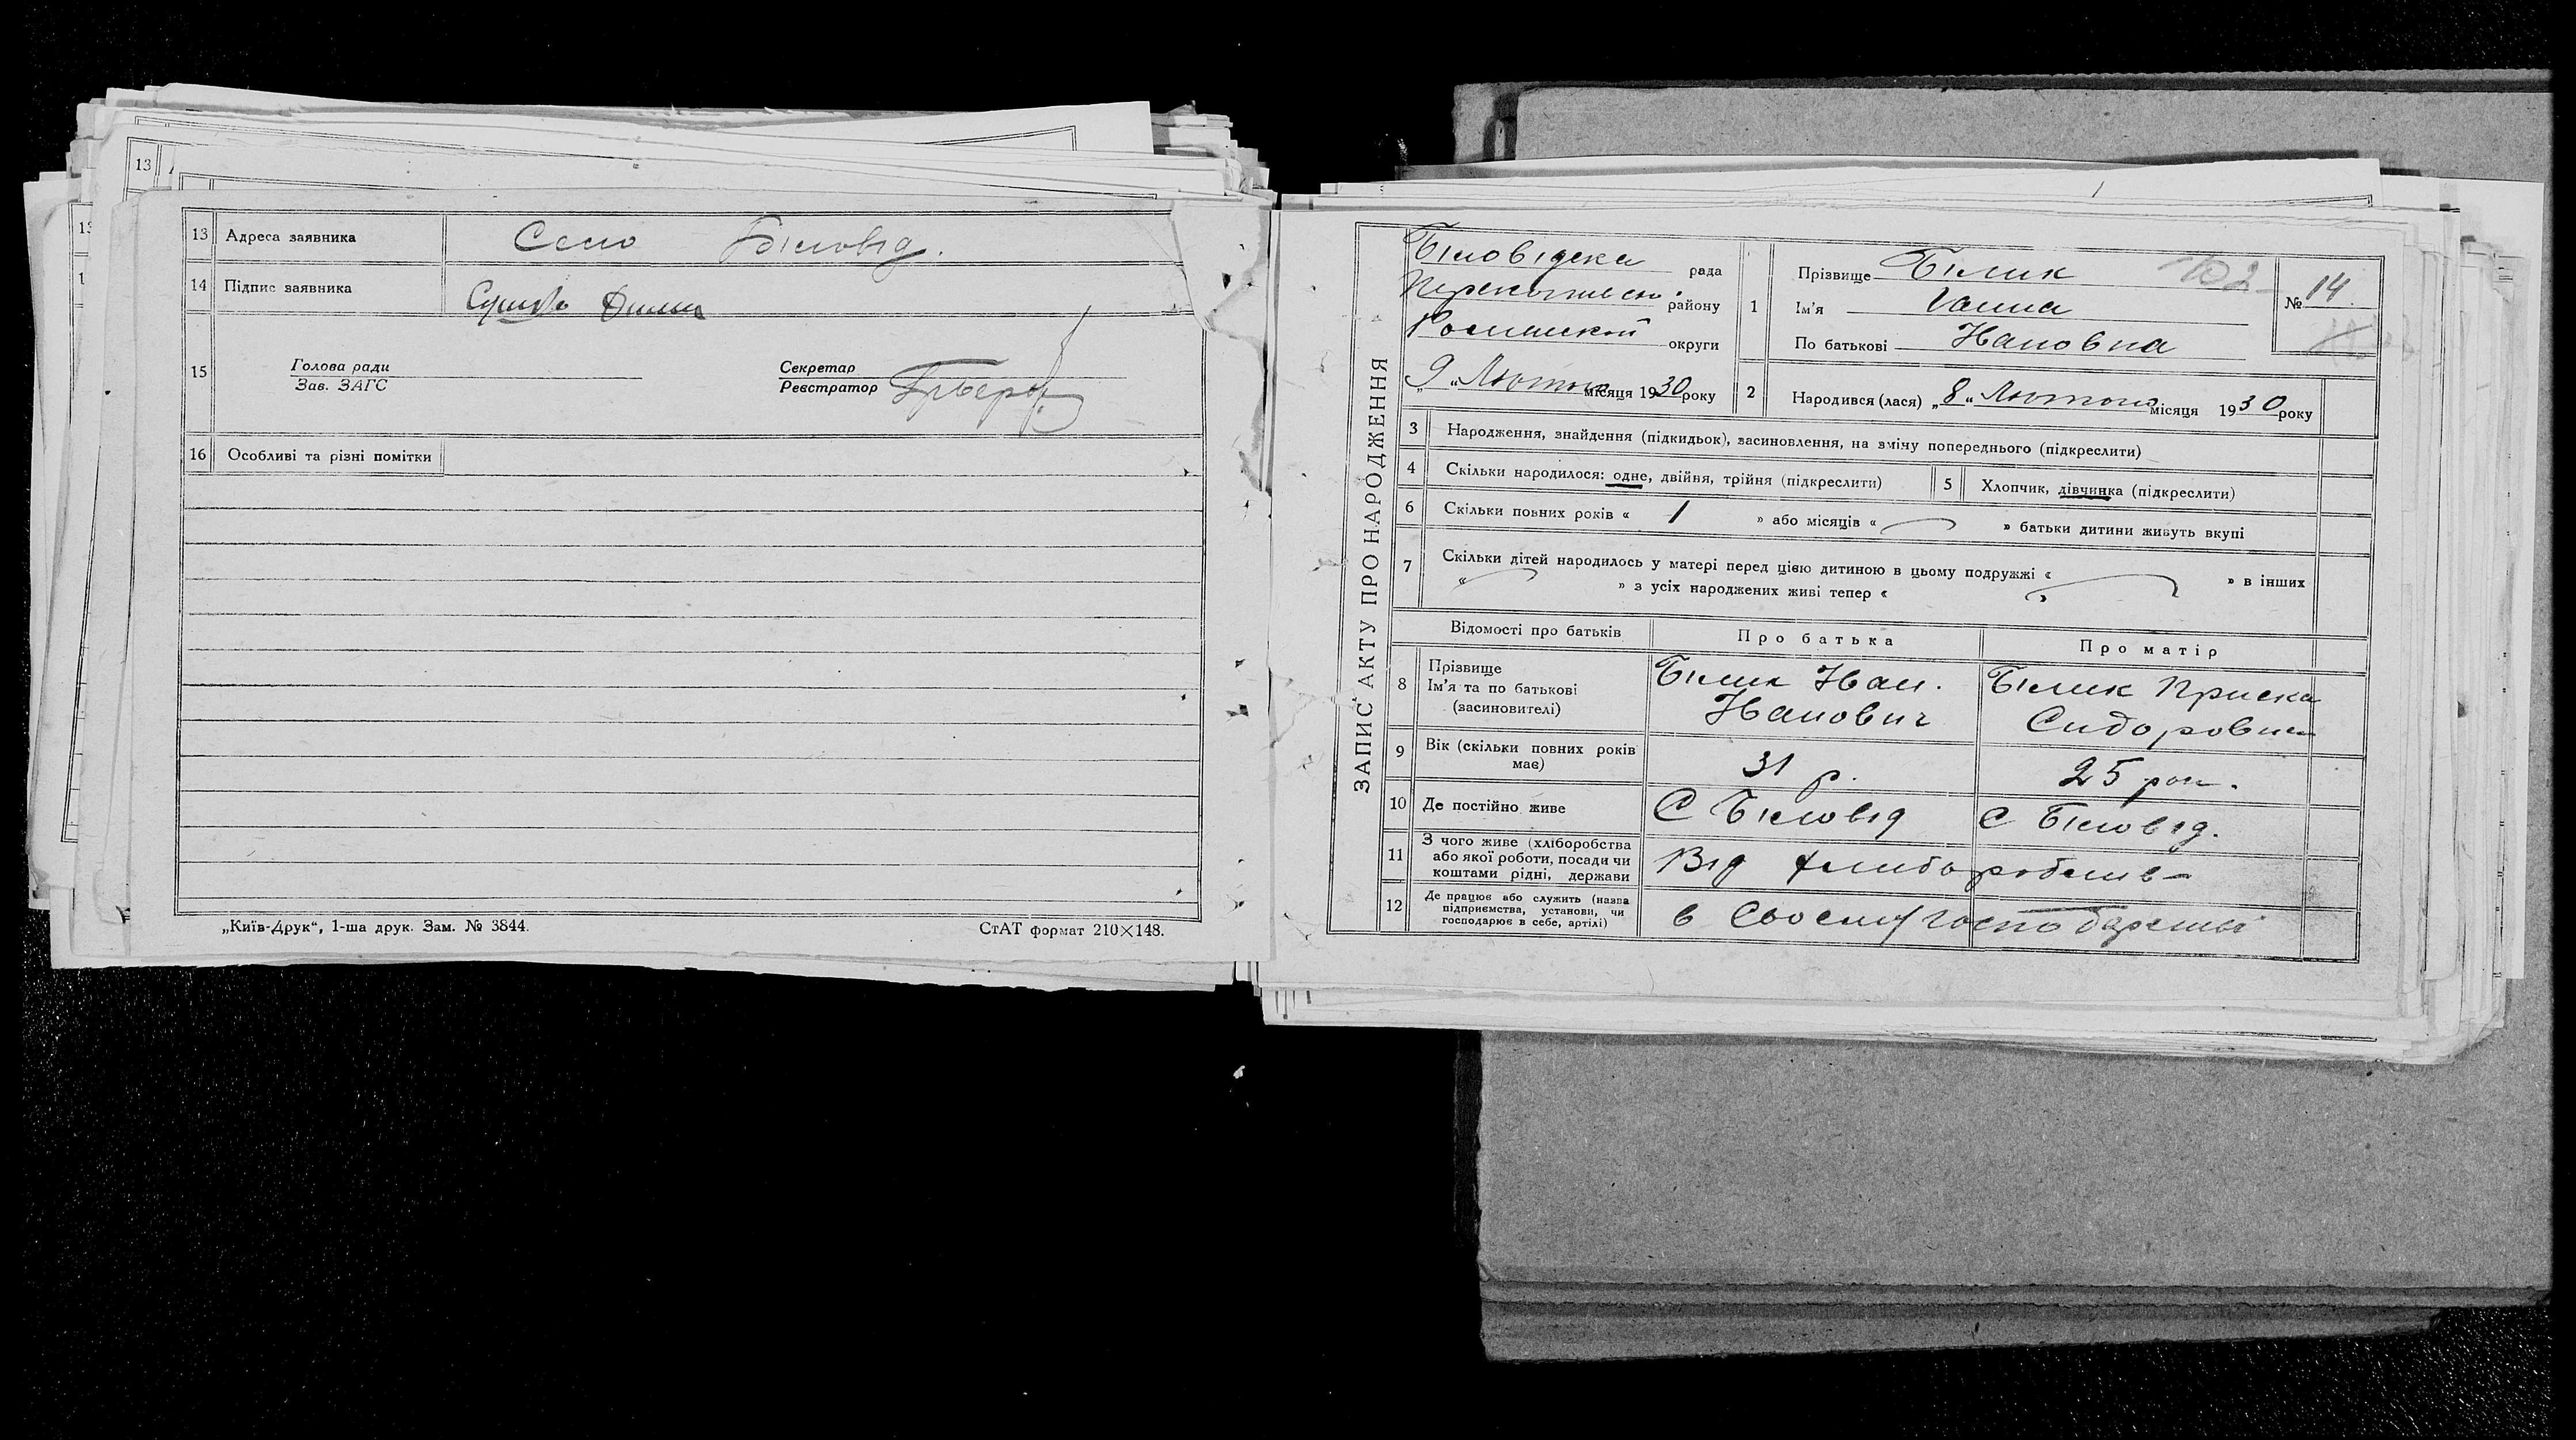 13
13 Адреса заявника Село Біловід.
14 Підпис заявника
15 Голова ради
Зав. ЗАГС
Секретар
Реєстратор
16 Особливі та різні помітки
„Київ-Друк“, 1-ша друк. Зам. № 3844.
СтАТ формат 210×148.
ЗАПИС АКТУ ПРО НАРОДЖЕННЯ
Біловідська рада
району
Роменської округи
„9“ Лютого місяця 1930 року
1 Прізвище Білик 102
Ім'я Ганна
По батькові Ивановна
№ 14
2 Народився (лася) „8“ Лютого місяця 1930 року
3 Народження, знайдення (підкидьок), засиновлення, на зміну попереднього (підкреслити)
4 Скільки народилося: одне, двійня, трійня (підкреслити)
5 Хлопчик, дівчинка (підкреслити)
6 Скільки повних років « 1 » або місяців « » батьки дитини живуть вкупі
7 Скільки дітей народилось у матері перед цією дитиною в цьому подружжі « » в інших
« » з усіх народжених живі тепер « »
Відомості про батьків Про батька Про матір
8 Прізвище
Ім'я та по батькові
(засиновителі)
Билик Иван.
Иванович
Билик Приска
Сидоровна
9 Вік (скільки повних років
має)
31 р.
25 рок.
10 Де постійно живе С Біловід С Біловід.
11 З чого живе (хліборобства
або якої роботи, посади чи
коштами рідні, держави
Від
12 Де працює або служить (назва
підприємства, установи, чи
господарює в себе, артілі)
в своему господарстві